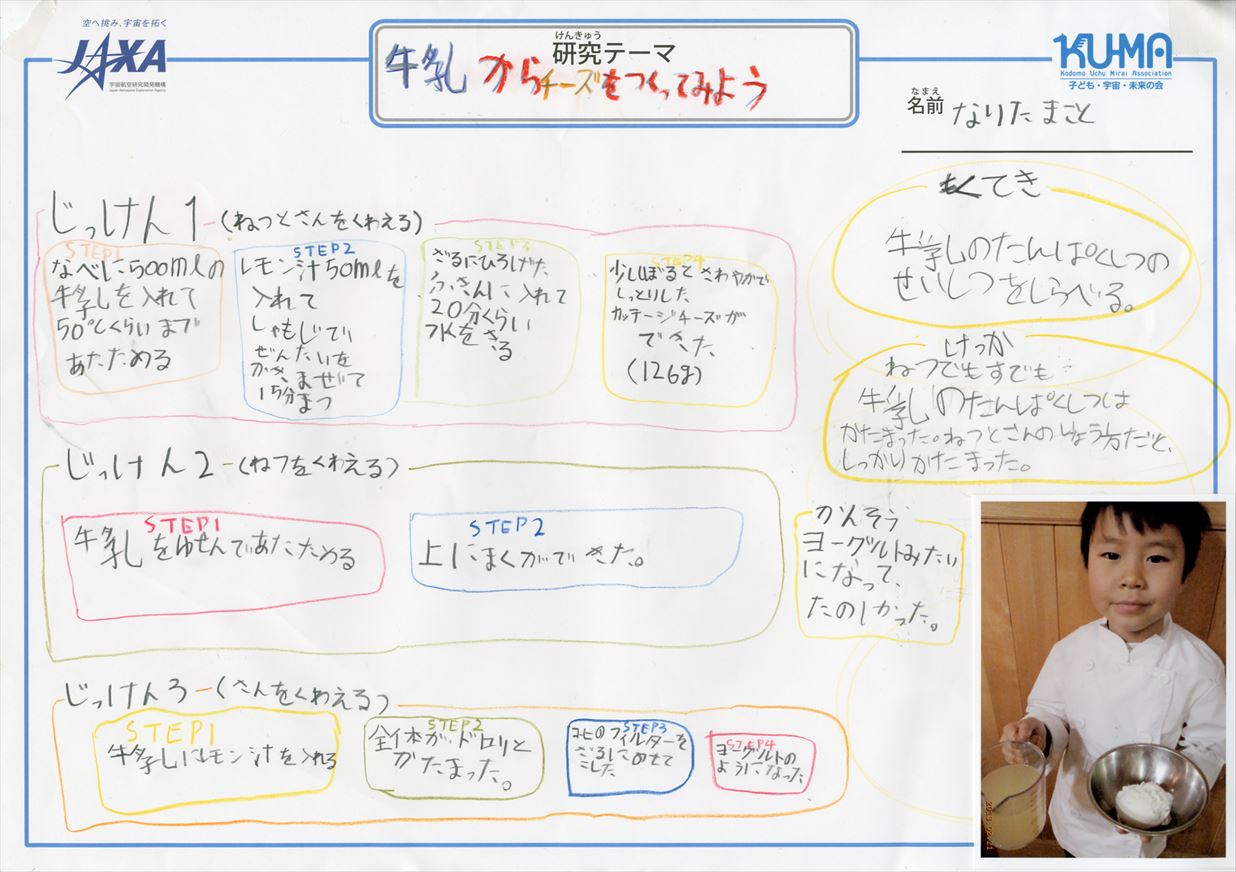 空へ挑み、宇宙を拓く
JAXA
宇宙航空研究開発機構
Japan Aerospace Exploration Agency
けんきゅう
研究テーマ
牛乳からチーズをつくってみよう
KU-MA
Kodomo Uchu Mirai Association
子ども・宇宙・未来の会
なまえ
名前 なりたまこと
じっけん1-(ねつとさんをくわえる)
STEP1
なべに500mlの
牛乳を入れて
50℃くらいまで
あたためる
STEP2
レモン汁50mlを
入れて
しゃもじで
ぜんたいを
かきまぜて
15分まつ
STEP3
ざるにひろげた
ふきんに入れて
20分くらい
水をきる
STEP4
少ししぼるとさわやかで
しっとりした
カッテージチーズが
できた
(126g)
もくてき
牛乳のたんぱくしつの
せいしつをしらべる。
けっか
ねつでもすでも
牛乳のたんぱくしつは
かたまった。ねつとさんのりょう方だと、
しっかりかたまった。
じっけん2-(ねつをくわえる)
STEP1
牛乳をゆせんであたためる
STEP2
上にまくができた。
かんそう
ヨーグルトみたい
になって、
たのしかった。
じっけん3-(さんをくわえる)
STEP1
牛乳にレモン汁を入れる
STEP2
全体が、ドロリと
かたまった。
STEP3
コーヒのフィルターを
ざるにのせて
こした
STEP4
ヨーグルトの
ようになった